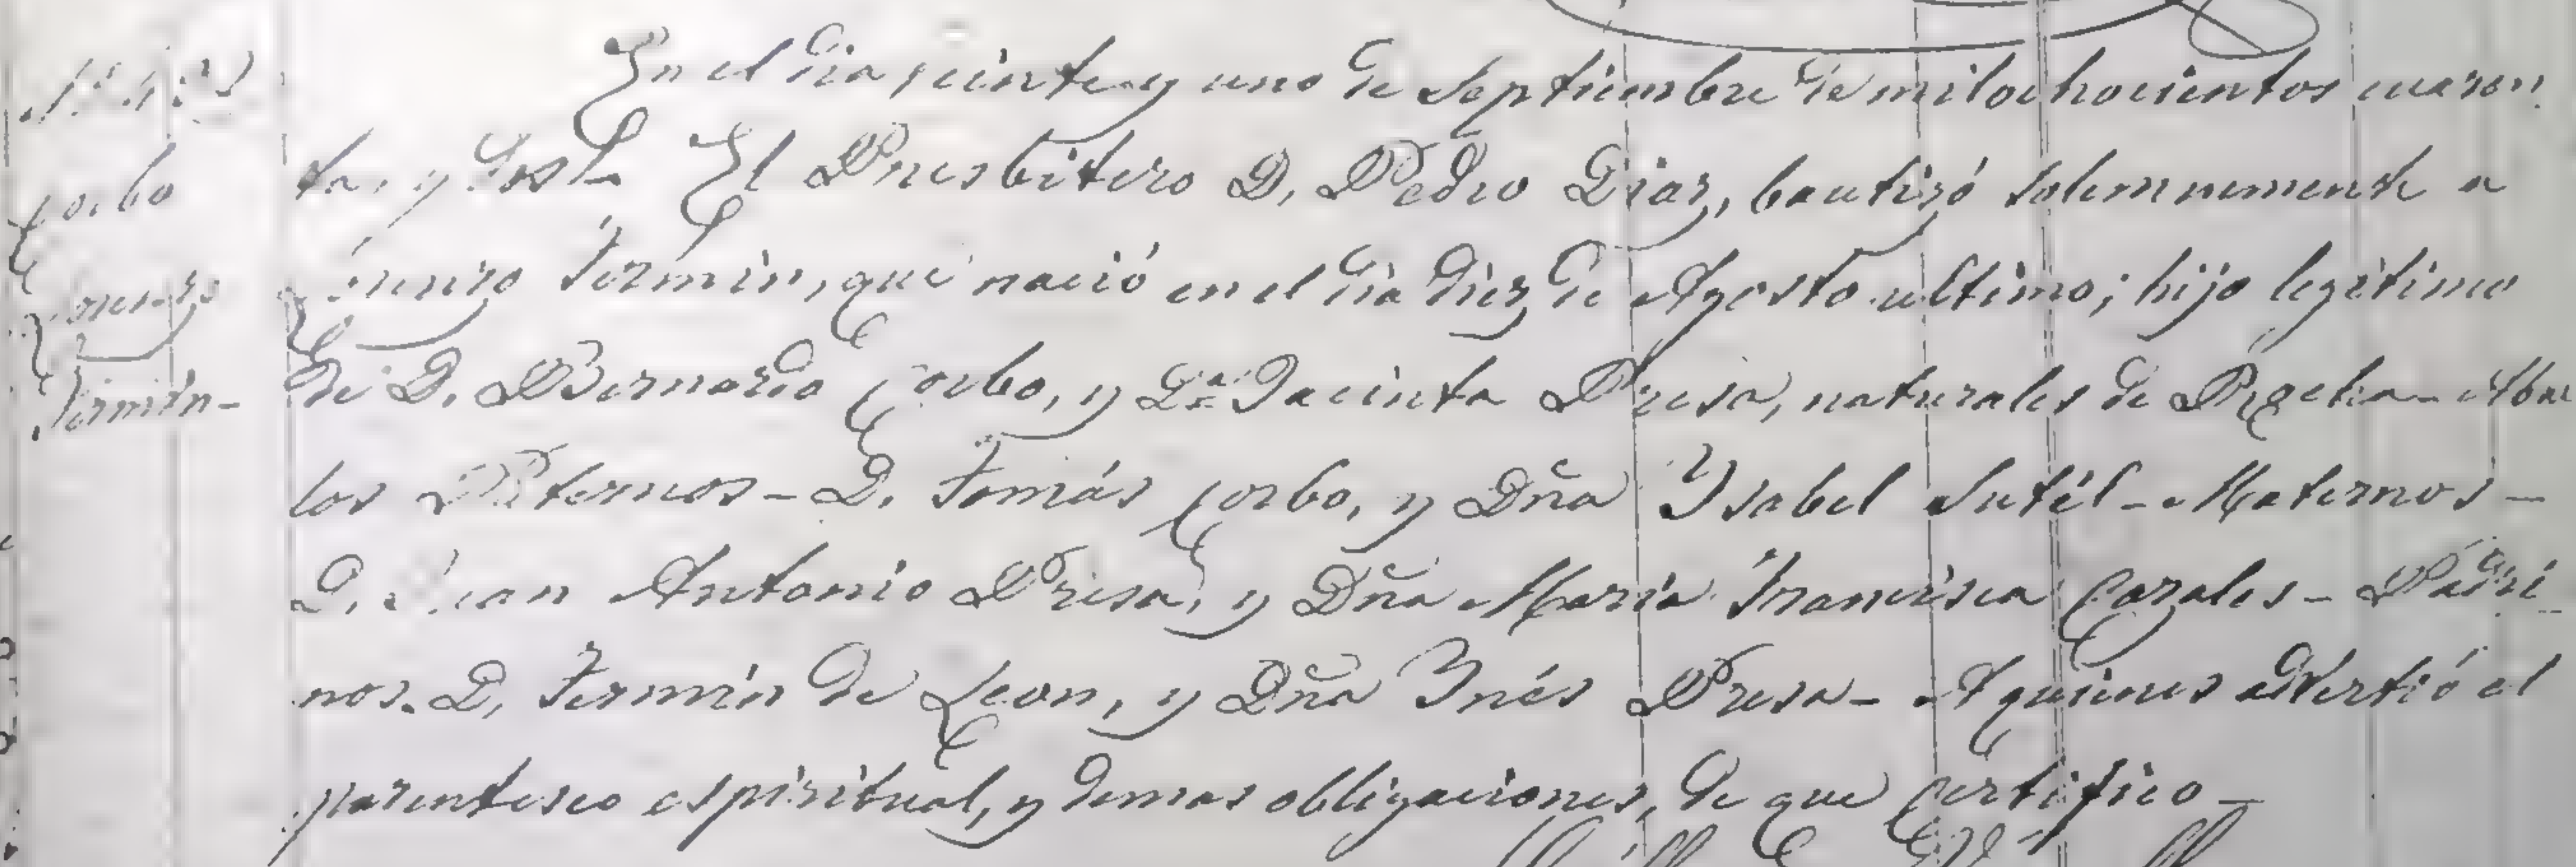 En el dia veinte y uno de Septiembre de mil ochocientos cuaren
Corbo
ta, y dos El Presbitero D. Pedro Diaz, bautizó solemnemente a
Fermin, que nació en el dia diez de Agosto ultimo; hijo legitimo
de D. Bernardo Corbo, y Da. Jacinta Presa, naturales de Abue
Fermin-
los Paternos - D. Tomás Corbo, y Dña Ysabel Sutíl - Maternos -
D. Juan Antonio Presa, y Dña Maria Francisca Cazales - Padri
nos. D. Fermin de Leon, y Dña Inés Presa - A quienes advertió el
parentesco espiritual, y demas obligaciones, de que Certifico -